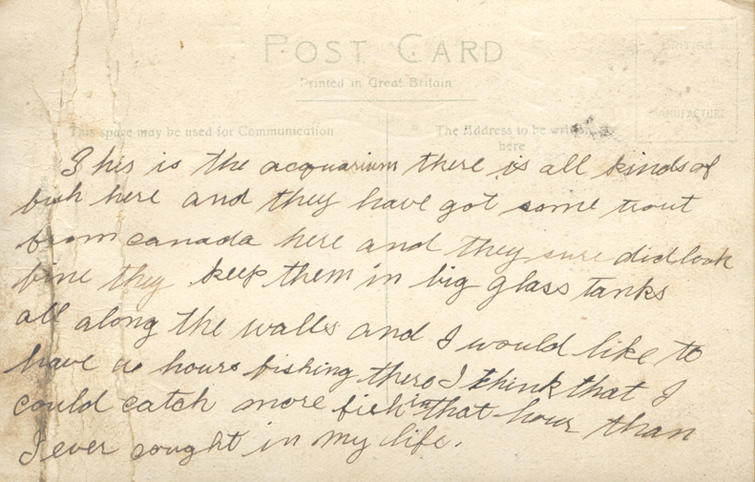 POST CARD
Printed in Great Britain
BRITISH
MANUFACTURE
This space may be used for Communication
The Address to be written
here
This is the acquarium there is all kinds of
fish here and they have got some trout
from canada here and they sure did look
fine they keep them in big glass tanks
all along the walls and I would like to
have a hours fishing there I think that I
could catch more fish in that hour than
I ever caught in my life.